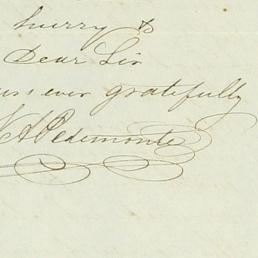 hurry &
Dear Sir
ever gratefully
Pedemonte